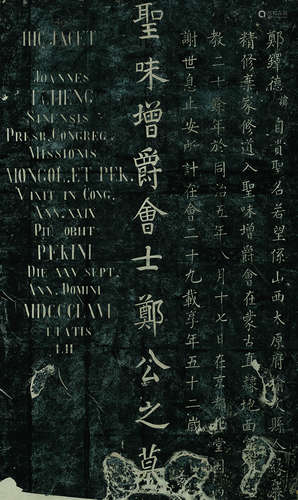 鄭鐸德 諱 自貴聖名若望係山西太原府榆次縣人
精修棄家修道入聖味增爵會在蒙古直隸地面
教二十餘年於同治五年八月十七日在京都北堂因
謝世息止安所計在會二十九載享年五十二歲
聖味增爵會士鄭公之墓
HIC JACET
JOANNES
TCHENG
SINENSIS
PRESB. CONGREG.
MISSIONIS
MONGOL. ET PEK.
VIXIT IN CONG.
ANN. XXIX
PIE OBIIT
PEKINI
DIE XXV SEPT.
ANN. DOMINI
MDCCCLXVI
ETATIS
LII